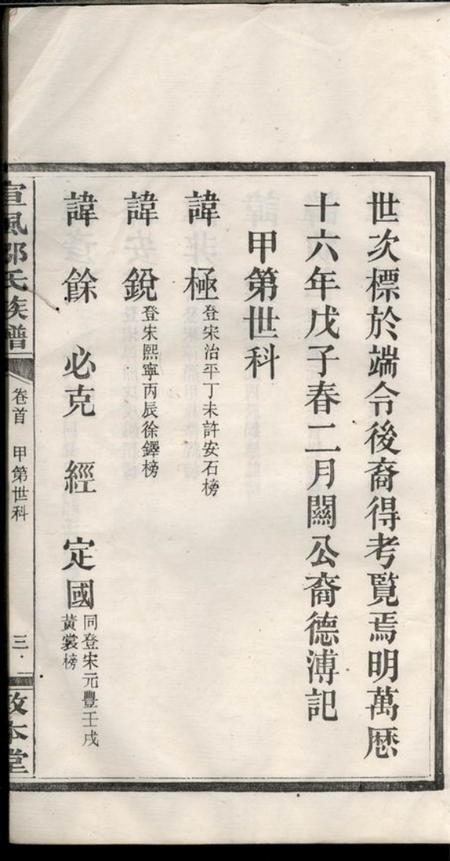 世次標於端令後裔得考覧焉明萬歷
十六年戊子春二月闗公裔德溥記
甲第世科
諱極登宋治平丁未許安石榜
諱銳登宋熙寧丙辰徐鐸榜
諱餘 必克 經 定國同登宋元豐壬戌黃裳榜
宣風鄒氏族譜
卷首 甲第世科
三
敦本堂